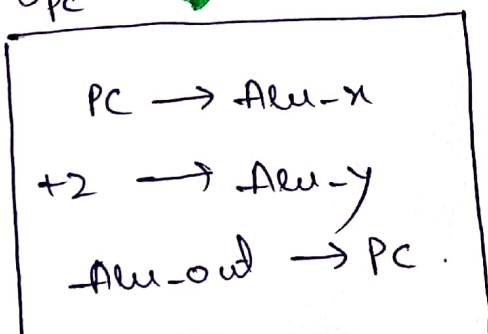 PC → Alu-x
+2 → Alu-y
Alu-out → PC.